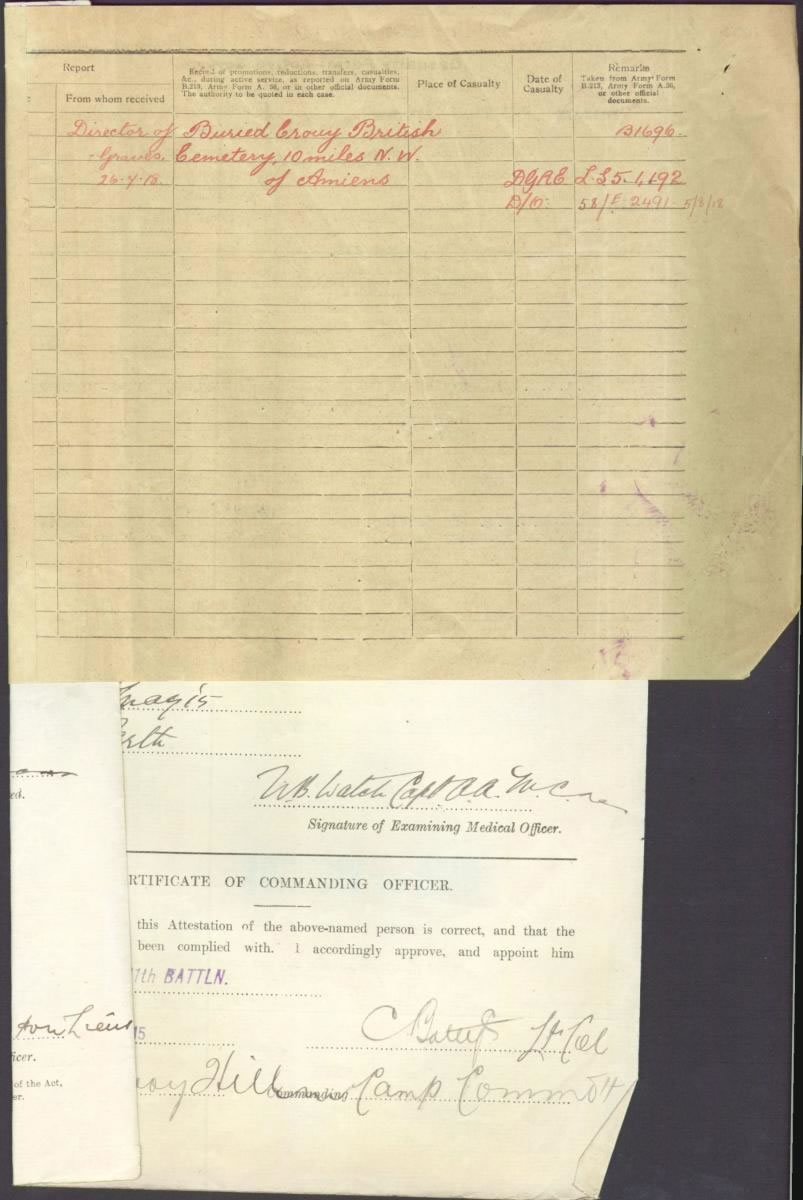 Report
Record of promotions, reductions, transfers, casualties,
&c., during active service, as reported on Army Form
B.213, Army Form A. 36, or in other official documents.
The authority to be quoted in each case.
Place of Casualty
Date of
Casualty
Remarks
Taken from Army Form
B.213, Army Form A.36,
or other official
documents.
From whom received
Director of Buried Crouy British B1696.
Graves. Cemetery, 10 miles N.W.
26.4.18. of Amiens DGRE L.L5.1,192
D/O. 58/E 2491. 5/8/18
may 15
W.B. Capt A.A.M.C.
Signature of Examining Medical Officer.
ed.
RTIFICATE OF COMMANDING OFFICER.
this Attestation of the above-named person is correct, and that the
been complied with. I accordingly approve, and appoint him
1th BATTLN.
15
C Lt Col
icer.
Hill Commanding Camp Commdt
of the Act,
er.